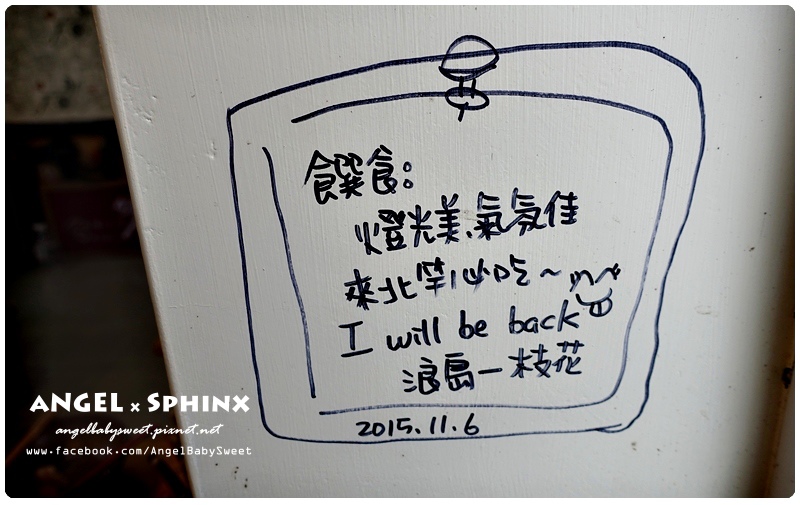 饌食：
燈光美、氣氛佳
來北竿必吃~
I will be back
浪島一枝花
2015.11.6
ANGEL x SPHINX
angelbabysweet.pixnet.net
www.facebook.com/AngelBabySweet